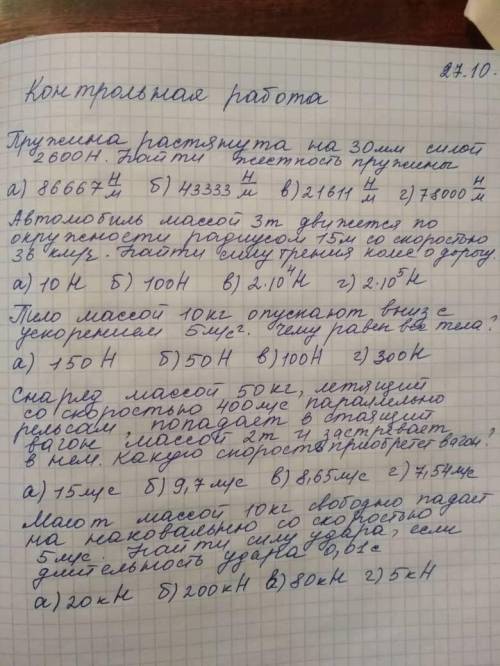 27.10.
Контрольная работа
Пружина растянута на 30мм силой
2600Н. Найти жесткость пружины
а) 86667 Н/м б) 43333 Н/м в) 21611 Н/м г) 78000 Н/м
Автомобиль массой 3т движется по
окружности радиусом 15м со скоростью
36 км/ч. Найти силу трения колес о дорогу.
а) 10Н б) 100Н в) 2·10⁴Н г) 2·10⁵Н
Тело массой 10кг опускают вниз с
ускорением 5м/с². Чему равен вес тела?
а) 150Н б) 50Н в) 100Н г) 300Н
Снаряд массой 50кг, летящий
со скоростью 400м/с параллельно
рельсам, попадает в стоящий
вагон массой 2т и застревает
в нем. Какую скорость приобретет вагон?
а) 15м/с б) 9,7м/с в) 8,65м/с г) 7,54м/с
Молот массой 10кг свободно падает
на наковальню со скоростью
5м/с. Найти силу удара, если
длительность удара 0,01с
а) 20кН б) 200кН в) 80кН г) 5кН